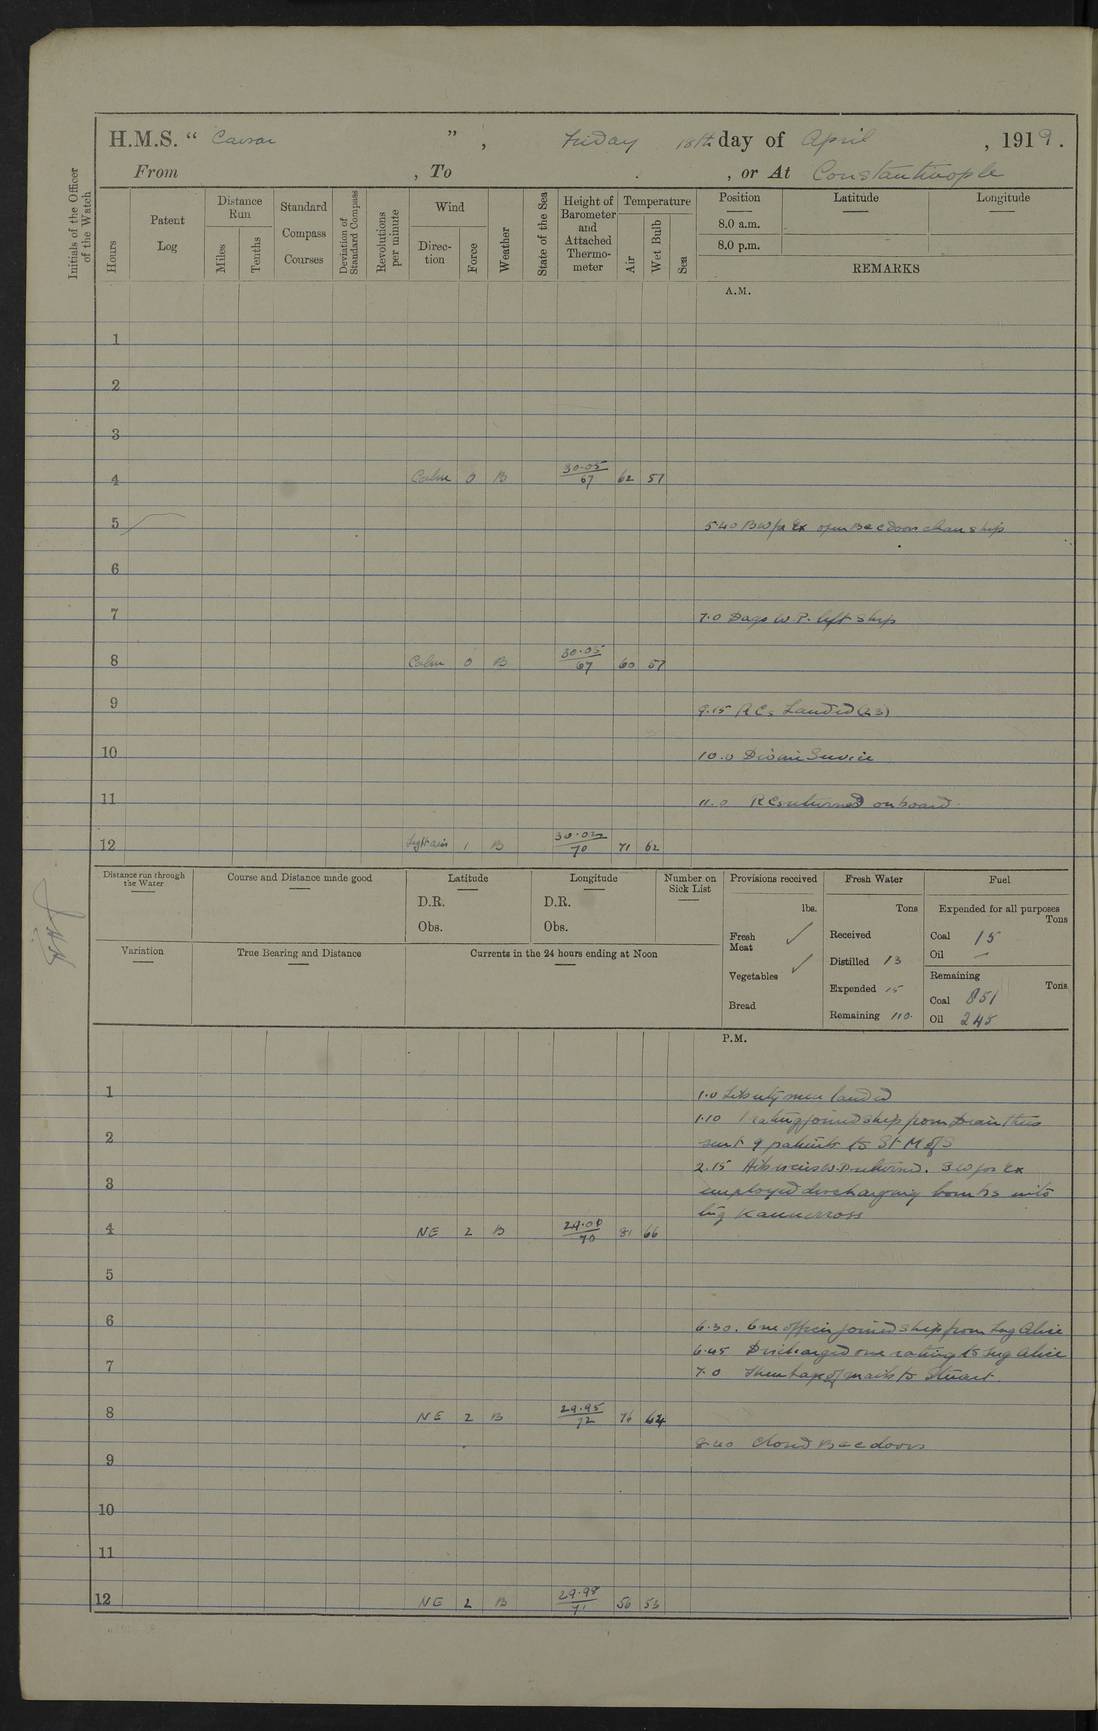 H.M.S. " Caesar ", Friday 18th day of April, 1919.
From , To , or At Constantinople
Initials of the Officer of the Watch
Hours
Patent Log
Distance Run
Miles
Tenths
Standard Compass Courses
Deviation of Standard Compass
Revolutions per minute
Wind
Direc-tion
Force
Weather
State of the Sea
Height of Barometer and Attached Thermo-meter
Temperature
Air
Wet Bulb
Sea
Position
Latitude
Longitude
8.0 a.m.
8.0 p.m.
REMARKS
A.M.
1
2
3
4 Calm 0 B 30.05/67 62 57
5 5.40 open B & C doors clean ship
6
7 7.0 W.P. left ship
8 Calm 0 B 30.05/67 60 57
9 9.15 RCs Landed (23)
10 10.0 Divine Service
11 11.0 RCs returned on board
12 Lightairs 1 B 30.02/70 71 62
Distance run through the Water
Course and Distance made good
Latitude
D.R.
Obs.
Longitude
D.R.
Obs.
Number on Sick List
Provisions received
lbs.
Fresh Meat ✓
Vegetables ✓
Bread
Fresh Water
Tons
Received
Distilled 13
Expended 15
Remaining 110
Fuel
Expended for all purposes
Tons
Coal 15
Oil —
Remaining
Tons
Coal 851
Oil 245
Variation
True Bearing and Distance
Currents in the 24 hours ending at Noon
P.M.
1 1.0 Liberty men landed
1.10 1 rating joined ship from
2 sent 9 patients to St M
2.15 W.P. returned.
3 employed discharging bombs into
lug
4 NE 2 B 70 81 66
5
6 6.30. One officer joined ship from Lug Alice
6.45 Discharged one rating to Lug Alice
7 7.0 bags of mails to Stuart.
8 NE 2 B 29.95/72 76 64
8.40 Closed B & C doors
9
10
11
12 NE 2 B 29.98/71 56 53